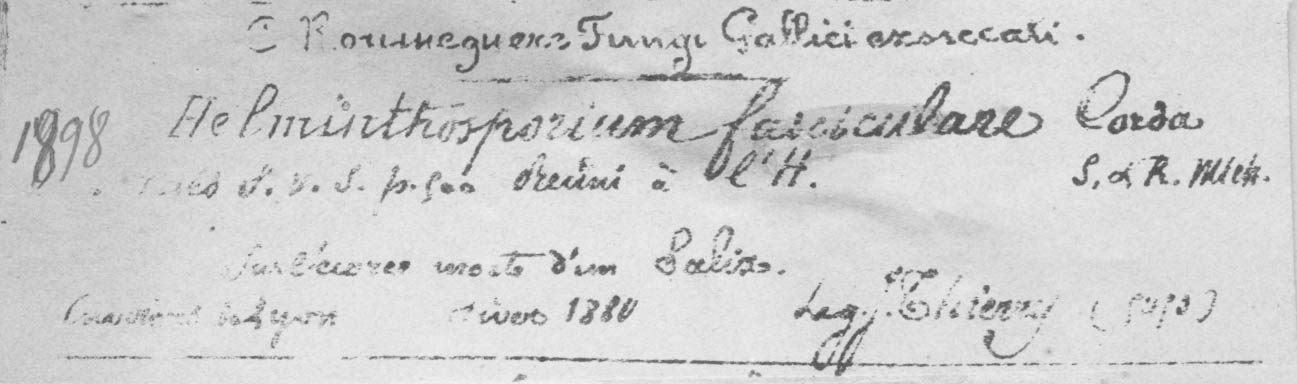 C Roumeguere Fungi Gallici exsiccati.
1898 Helminthosporium fasciculare Corda
S. V. S. p. Réuni à l'H. S. & R. Mich.
Sur l'écorce morte d'un Salix.
Environs de Lyon hiver 1880 Leg. J. Thierry